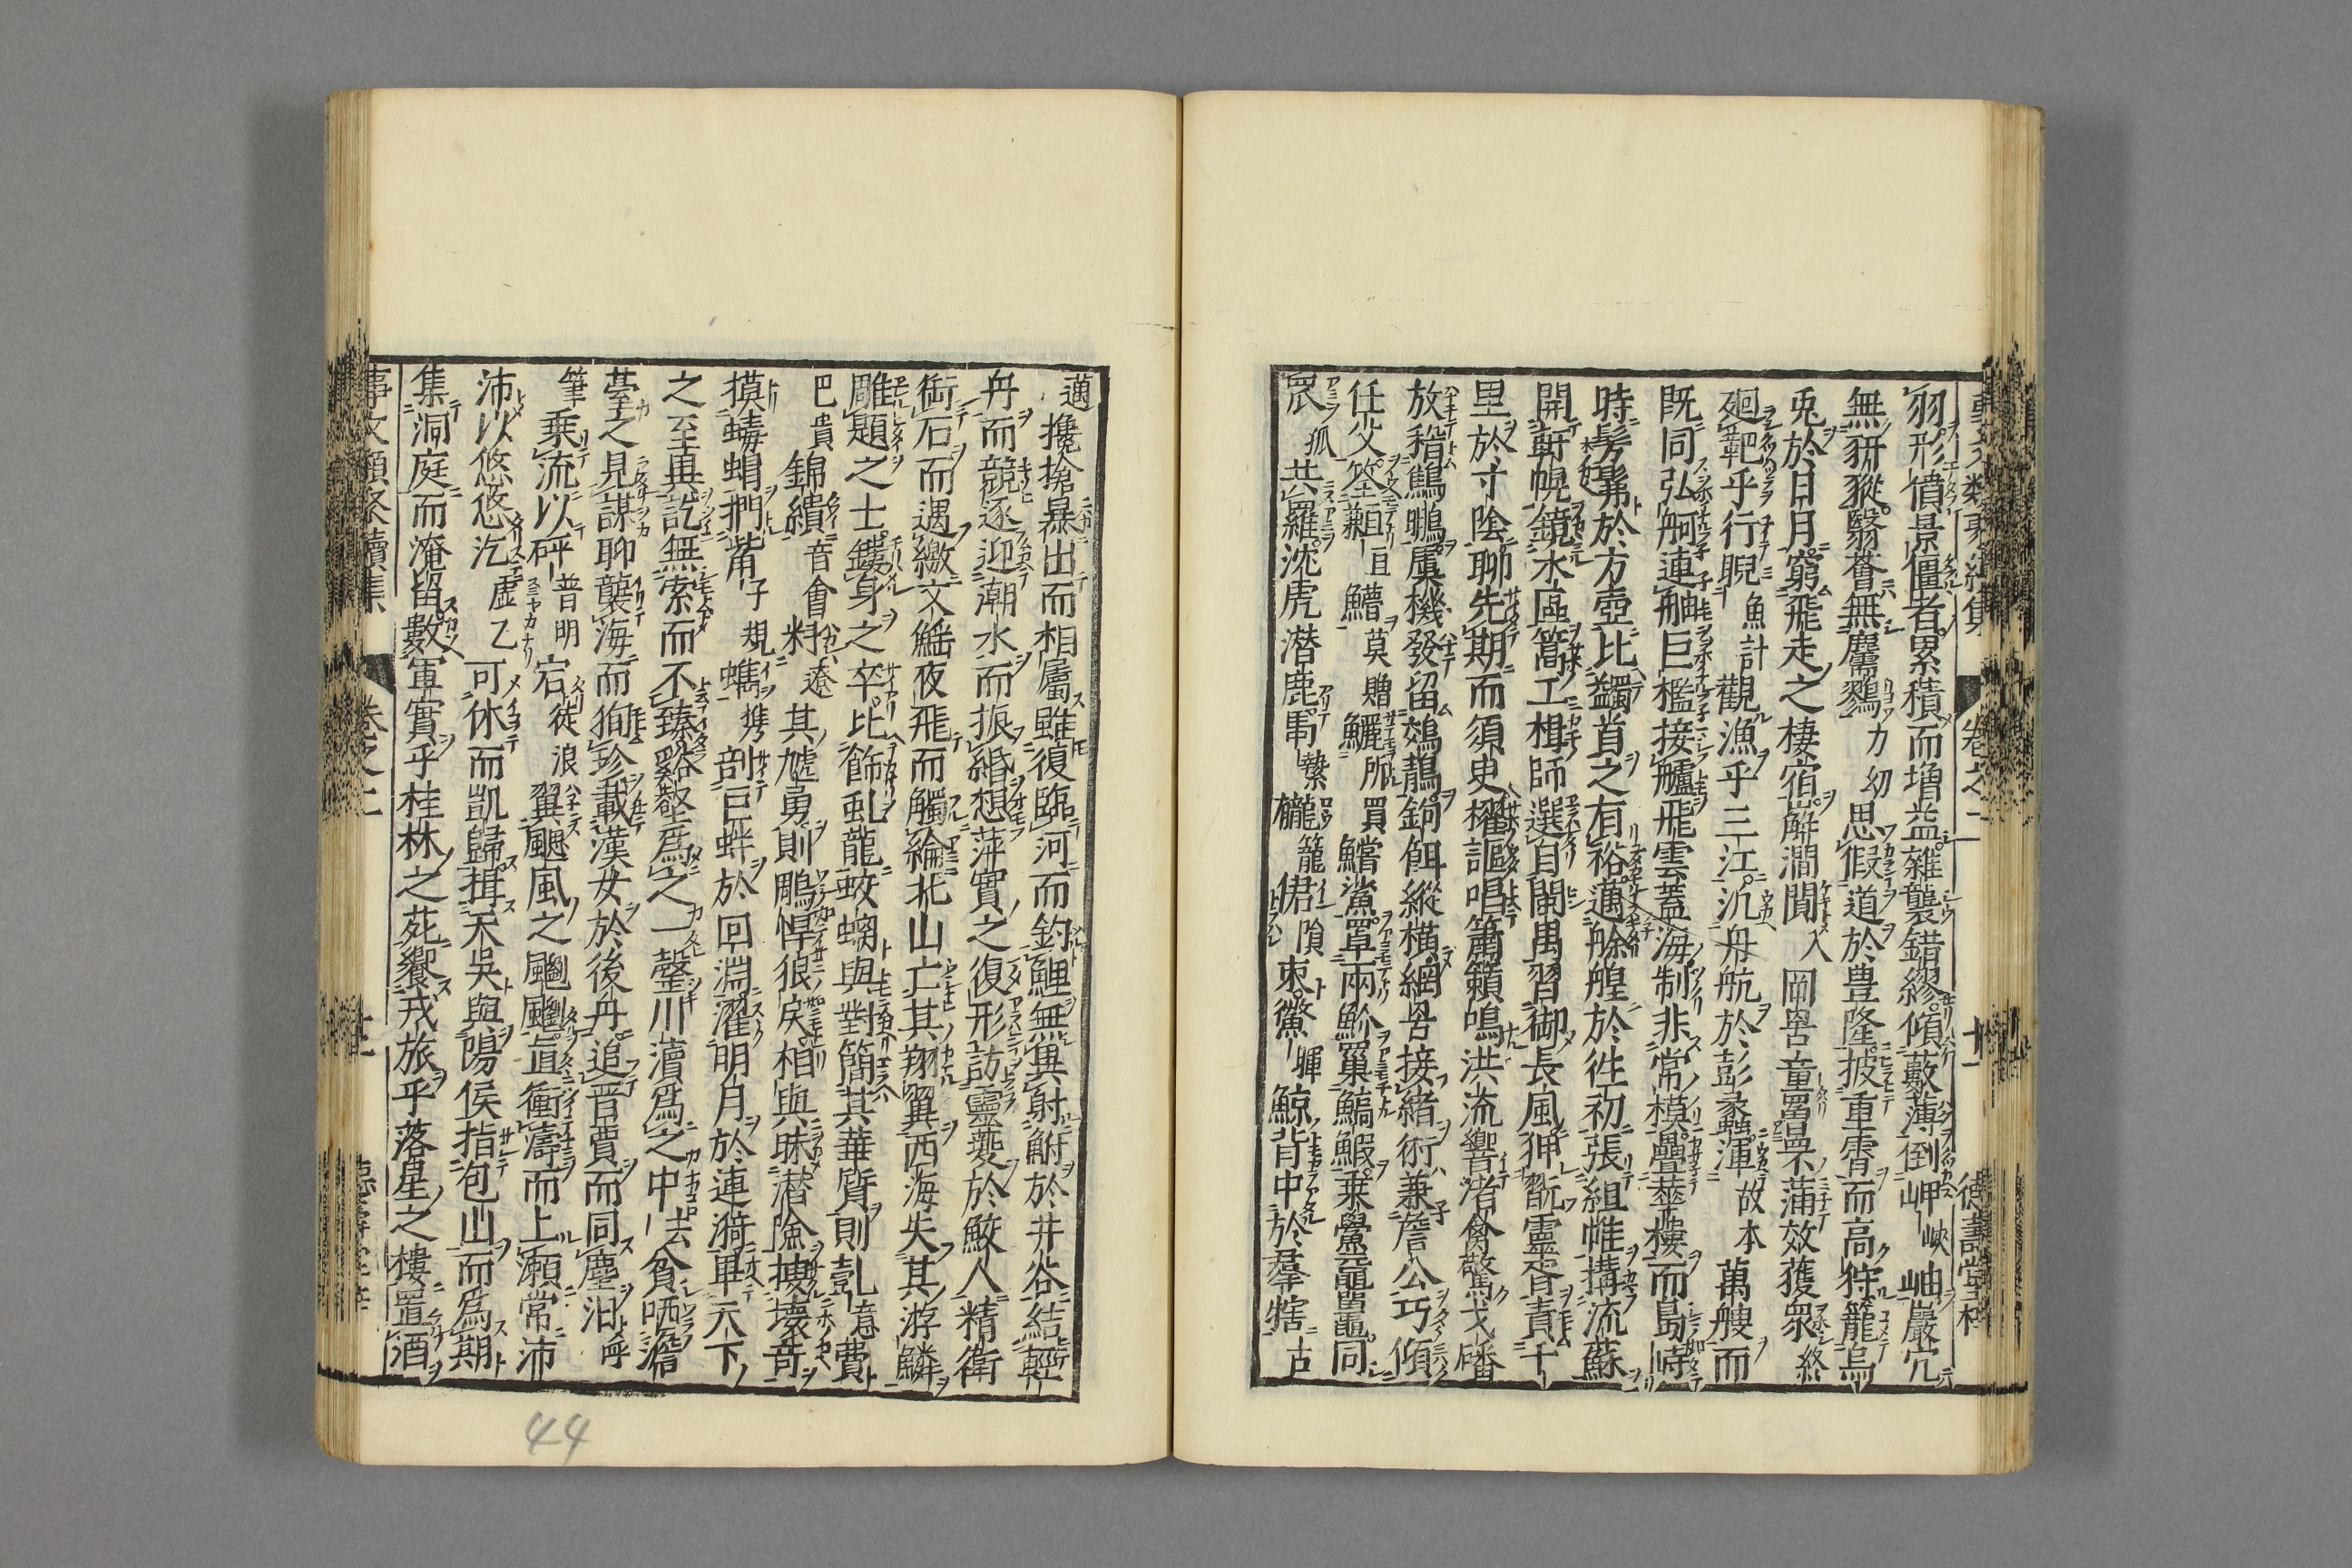 羽形僨景僵者累積而增益雜襲錯繆傾藪薄倒岬岬峽岫巖穴
無豜豵翳薈無麡鷚力幼思假道於豊隆披重霄而高狩籠烏
兎於日月窮飛走之棲宿嶰澗閴入岡岵童罾罘蒲效獲衆終
廻靶乎行睨魚計觀漁乎三江汎舟航於彭蠡渾故本萬艘而
既同弘舸連舳巨檻接艫飛雲蓋海制非常模疊華樓而島峙
時髣髴於方壺比鷁首之有裕邁艅艎於徃初張組帷搆流蘇
開軒幌鏡水區篙工楫師選自閩禺習御長風狎翫靈胥責千
里於寸陰聊先期而須史櫂謳唱簫籟鳴洪流響渚禽驚弋磻
放稽鷦鵬虞機發留鵁鶄鉤餌縱橫網罟接緒術兼詹公巧傾
任父筌䱍亘䱭莫贈鱺所買鱨鯊罩兩魪罺鰝鰕乗鱟黿鼉同
罛孤共羅沈虎潜鹿馽縶櫳籠僒隕朿徽䲔暉鯨背中於羣犗古
邁攙搶暴出而相屬雖復臨河而釣鯉無異射鮒於井谷結輕
舟而競逐迎潮水而振緡想萍實之復形訪靈夔於鮫人精衛
銜石而遇繳文鰩夜飛而觸綸北山亡其翔翼西海失其游鱗
雕題之士鏤身之卒比飾虬龍蛟螭與對簡其華質則亄意費
巴貴錦繢音會料遼其虓勇則鵰悍狼戾相與昧潜險搜壞奇
摸蝳蝐捫觜子規蠵携剖巨蚌於回淵濯明月於連漪畢天下
之至異訖無索而不臻谿壑爲之一罄川瀆爲之中去貧哂澹
薹之見謀聊襲海而狥珍載漢女於後舟追晋賈而同塵汩呼
筆乗流以砰普明宕徒浪翼颸風之䬘䬘直衝濤而上瀨常沛
沛以悠悠汔虚乙可休而凱歸揖天吳與陽侯指包山而爲期
集洞庭而淹留數軍實乎桂林之苑饗戎旅乎落星之樓置酒
事文類聚續集　卷之二　十一　德壽堂梓
44